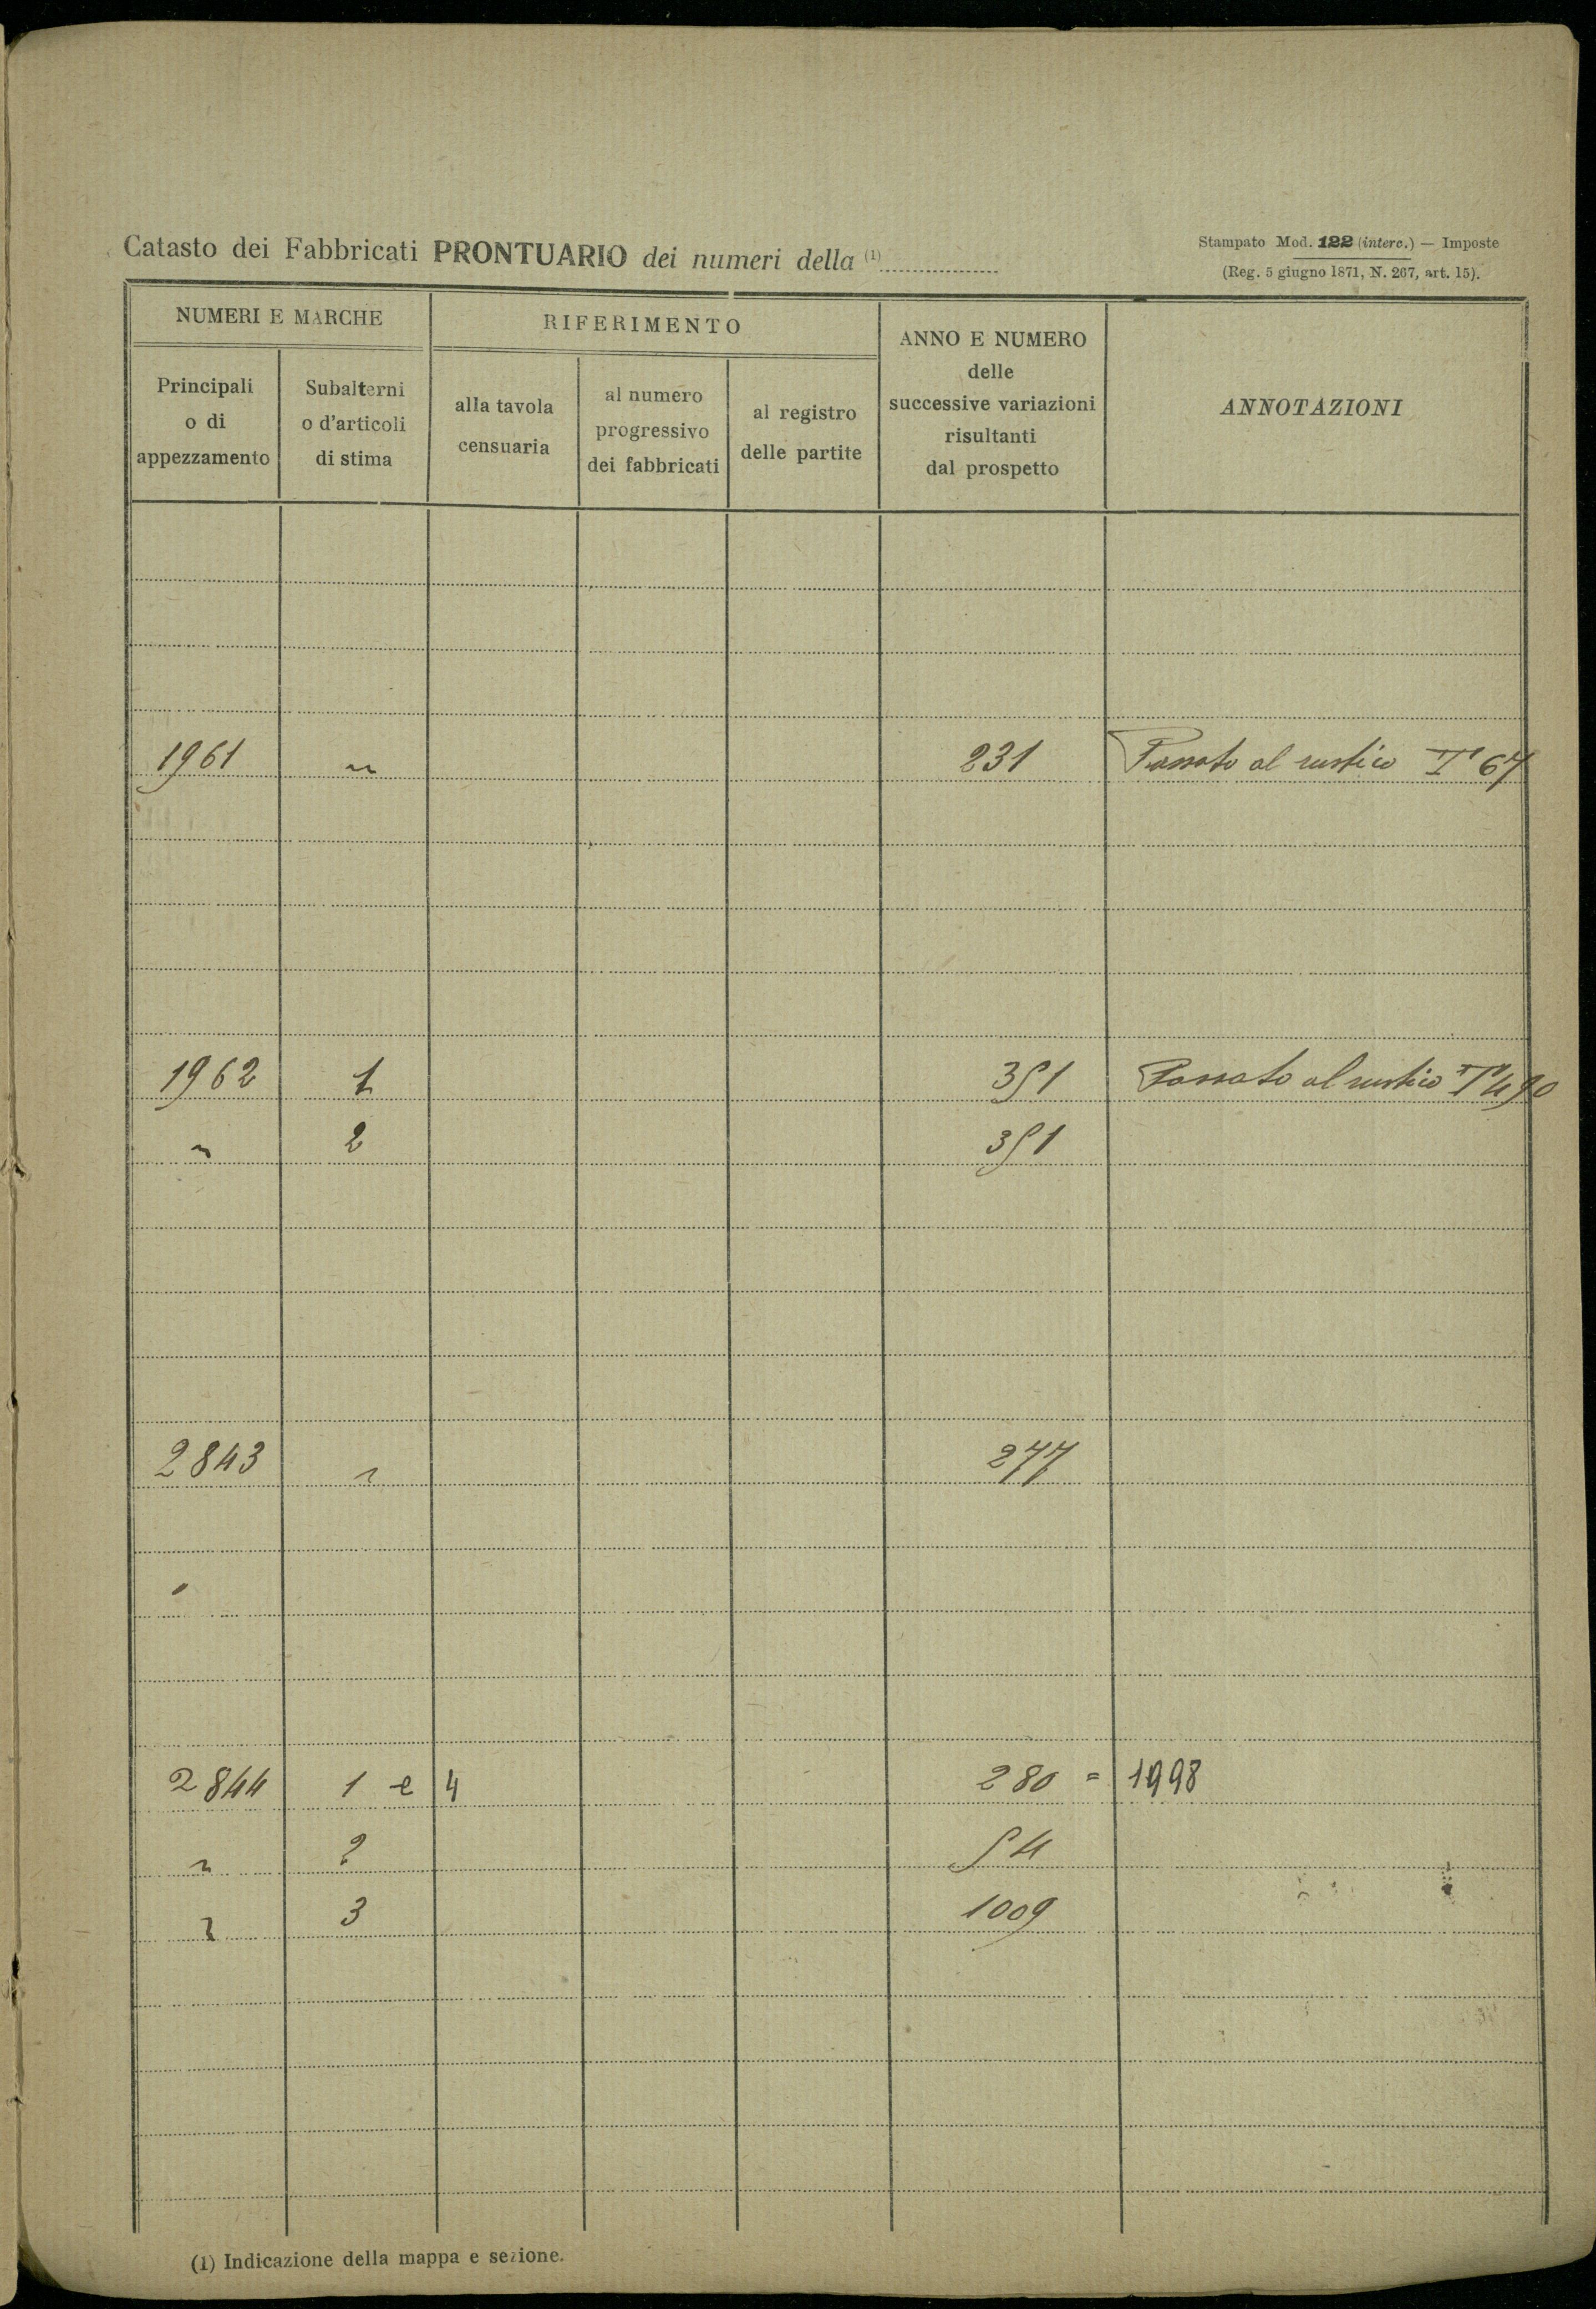 Catasto dei Fabbricati PRONTUARIO dei numeri della (1)
Stampato Mod. 122 (interc.) — Imposte
(Reg. 5 giugno 1871, N. 267, art. 15).
NUMERI E MARCHE
RIFERIMENTO
ANNO E NUMERO
delle
successive variazioni
risultanti
dal prospetto
ANNOTAZIONI
Principali
o di
appezzamento
Subalterni
o d'articoli
di stima
alla tavola
censuaria
al numero
progressivo
dei fabbricati
al registro
delle partite
1961 " 231 Passato al rustico T 67
1962 1 351 Passato al rustico T 490
" 2 351
2843 " 277
2844 1 e 4 280 = 1998
" 2 54
" 3 1009
(1) Indicazione della mappa e sezione.